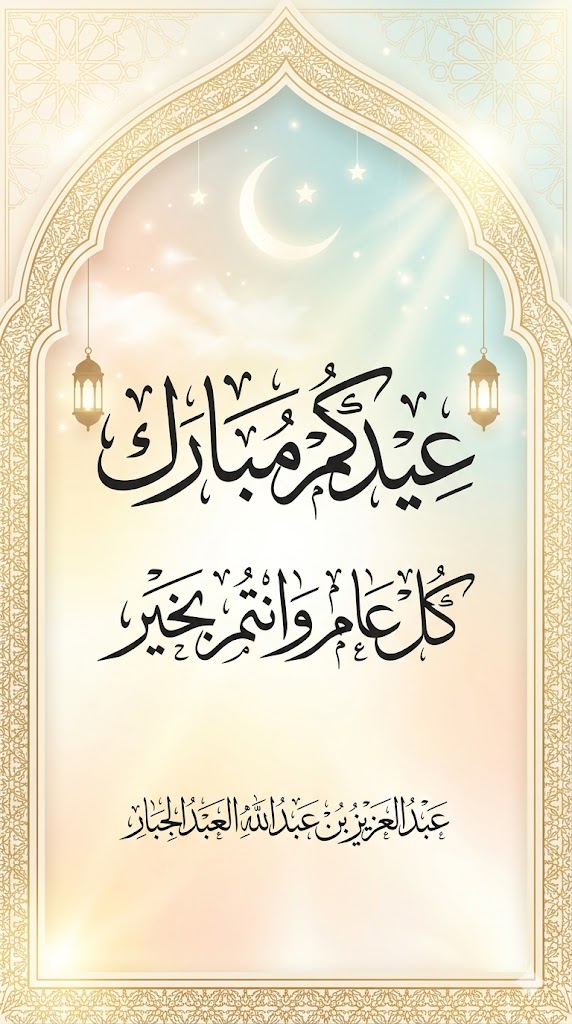 عِيْدكُمْ مُبَارَك
كُلْ عَام وَانتُمْ بخَيْر
عَبْدُ العَزِيْزُ بُنْ عَبدُ اللَّهُ العَبْدُ الجِبَارِ